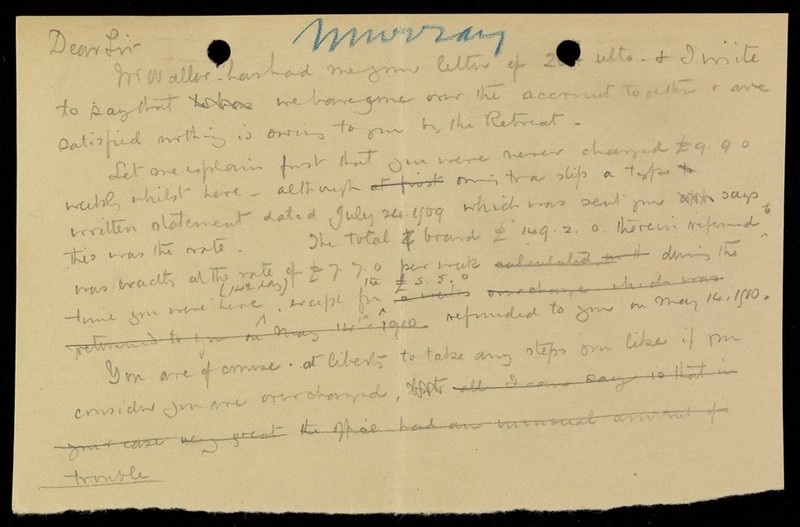 Murray
Dear Sir
Mr Waller has had me your letter of 2 ulto - & I write
to say that we have gone over the account together & are
satisfied nothing is owing to you by the Retreat -
Let me explain first that you were never charged £9. 9 0
weekly whilst here - although at first owing to a slip a type
written statement dated July 24. 1909 which was sent you says
this was the rate. The total board £149. 2. 0. therein referred to
was exactly at the rate of £7. 7. 0 per week calculated during the
time you were here, except for £5. 5. 0 overcharge which was
returned to you on May 14th 1910 refunded to you on May 14. 1910.
You are of course at liberty to take any steps you like if you
consider you are overcharged, all I can say is that in
your case very great the office had an unusual amount of
trouble